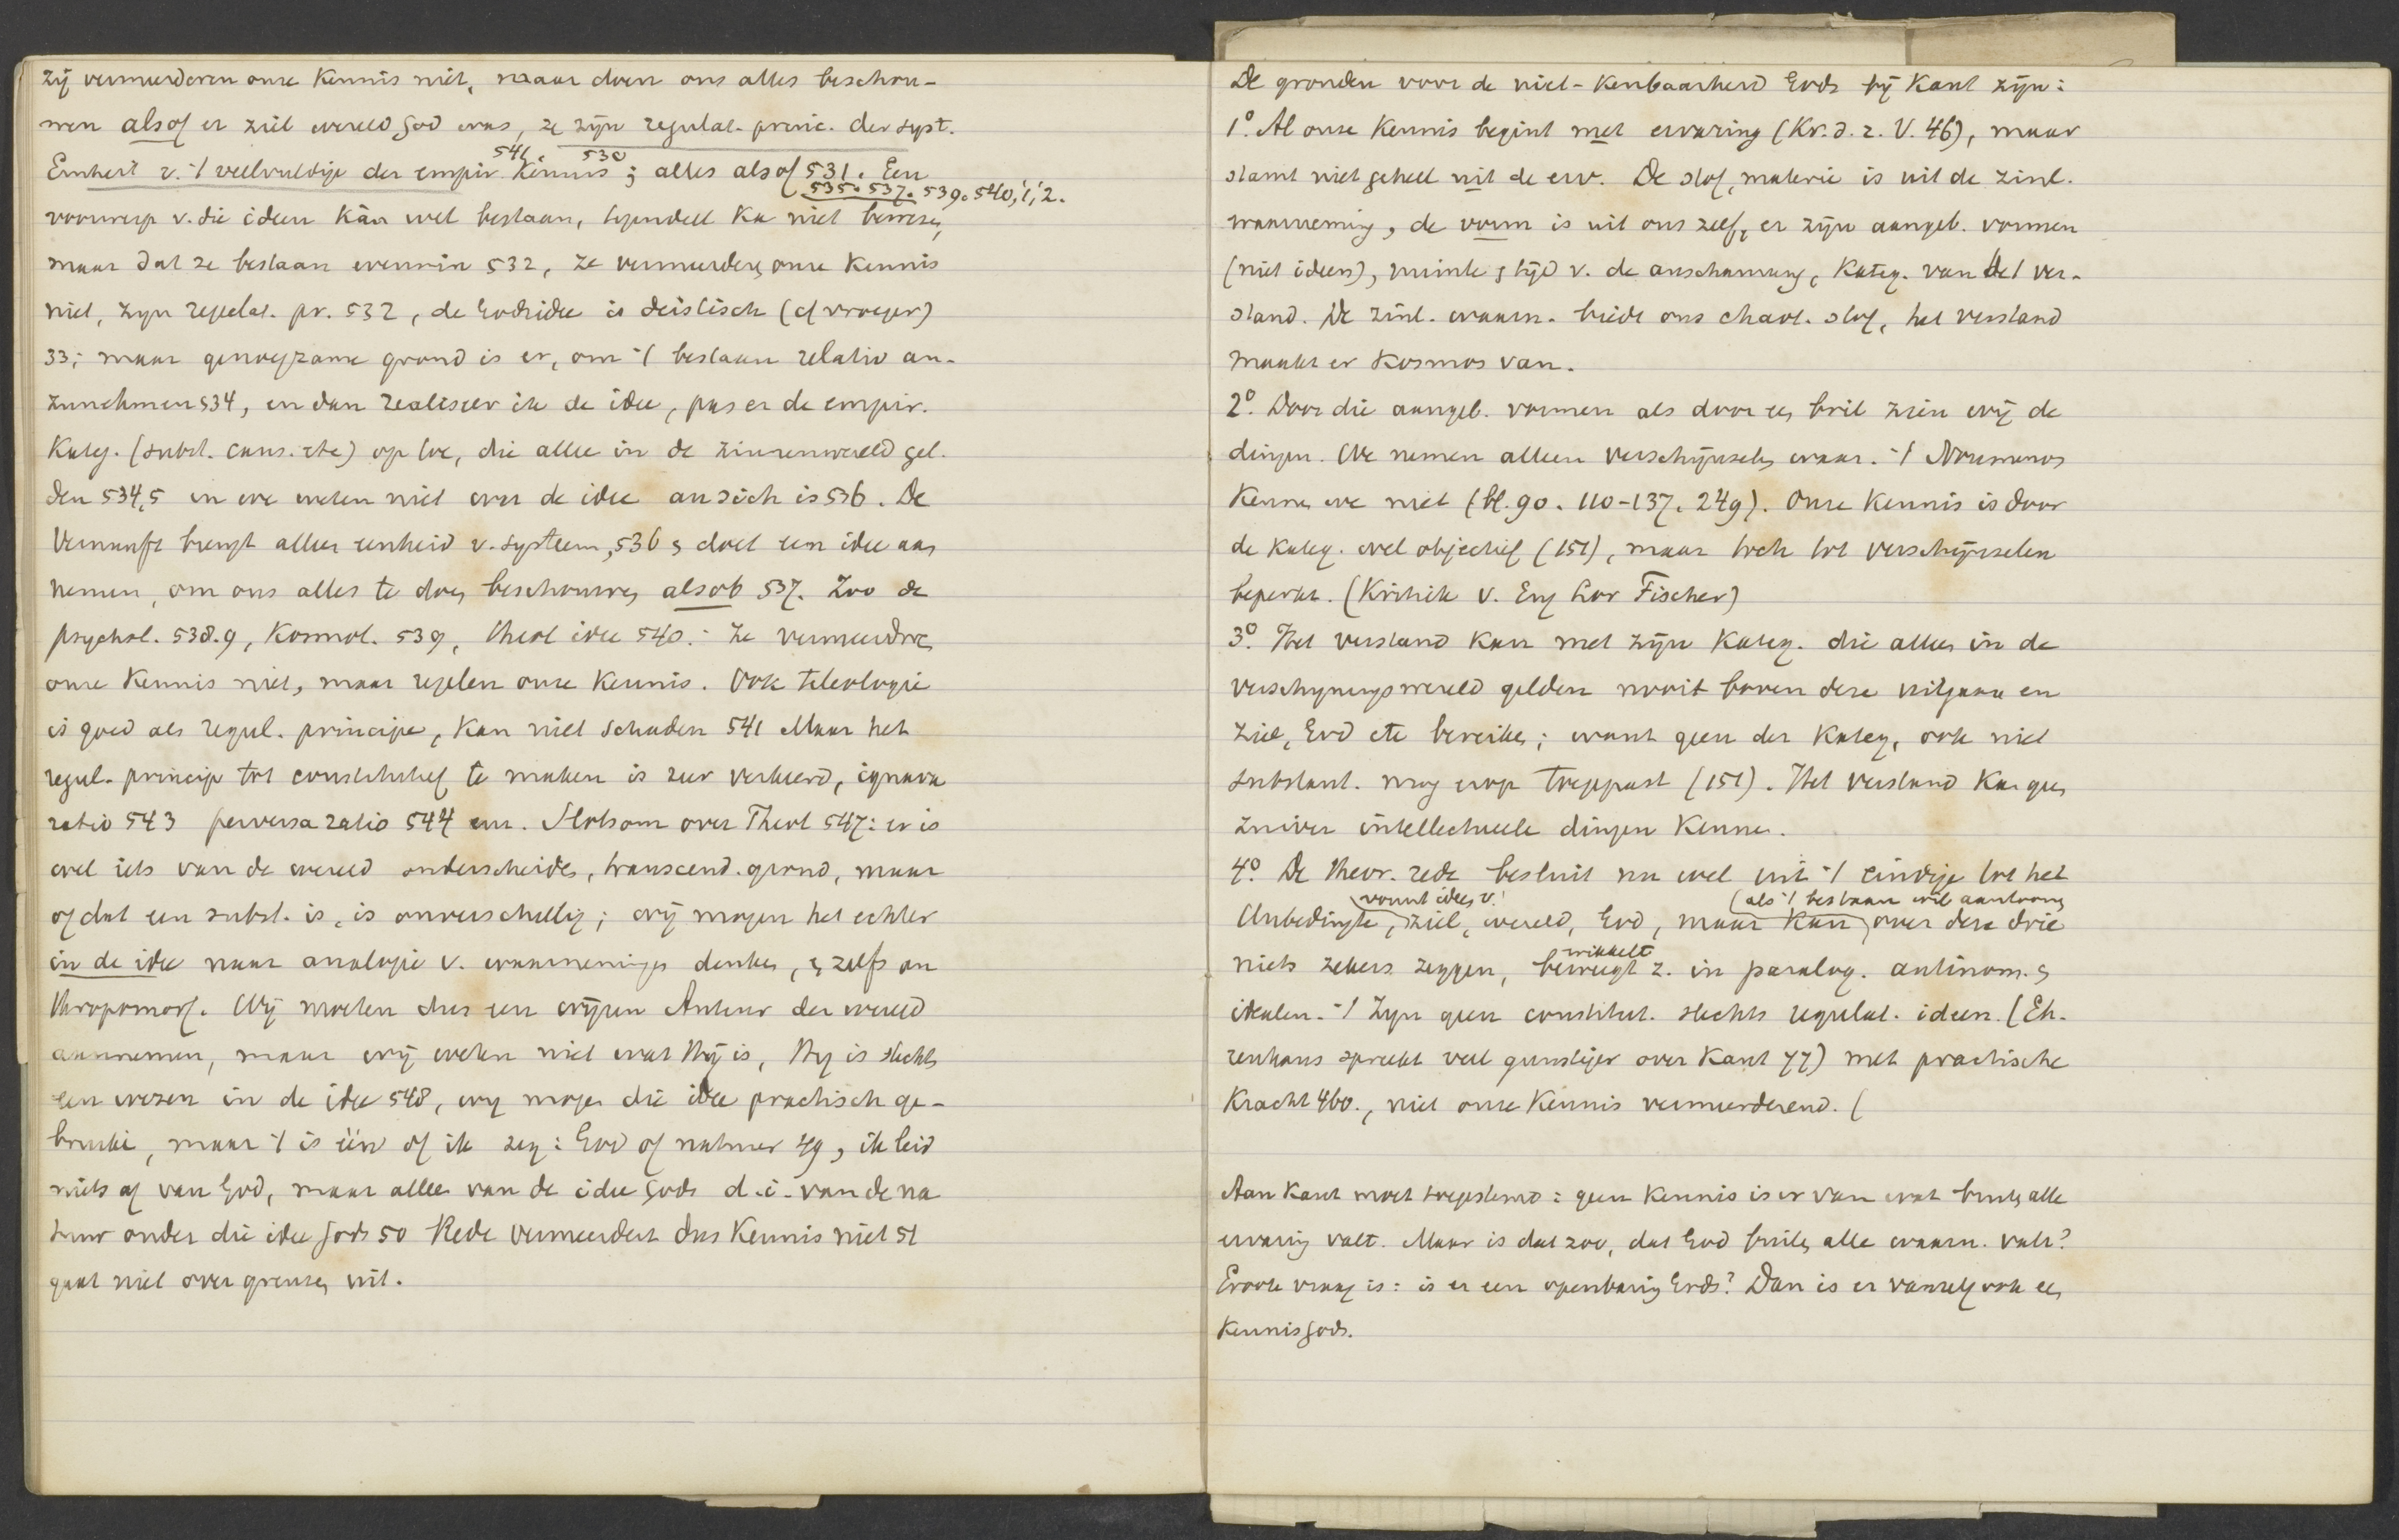 zij vermeerderen onze Kennis niet, maar doen ons alles beschou-
wen alsof er ziel wereld God was, ze zijn regulat. princ. der syst.
541. 530
Einheit v. 't veelvuldige der empir. Kennis; alles alsof 531. Een
535. 537. 539. 540, 1, 2.
voorwerp v. die ideen kàn wel bestaan, tegendeel ka niet bewezen,
maar dat ze bestaan evenmin 532, ze vermeerderen onze Kennis
niet, zyn regelat. pr. 532, de Godsidee is deistisch (cf vroeger)
33; maar genoegzame grond is er, om 't bestaan relativ an-
zunehmen 534, en dan realiseer ik de idee, pas er de empir.
Kateg. (subst. caus. etc) op toe, die allee in de zinnenwereld gel-
den 534,5 en we weten niet wat de idee an sich is 536. De
Vernunft brengt alleen eenheid v. systeem, 536 & doet een idee aan
nemen, om ons alles te doen beschouwen alsob 537. Zoo de
psychol. 538.9, Kosmol. 539, theol idee 540. Ze vermeerdren
onze Kennis niet, maar regelen onze Kennis. Ook teleologie
is goed als regul. principe, kan niet schaden 541 Maar het
regul. princip tot constitutief te maken is zeer verkeerd, ignava
ratio 543 perversa ratio 544 enz. Slotsom over Theol 547: er is
wel iets van de wereld onderscheiden, transcend. grond, maar
of dat een subst. is, is onverschillig; wij mogen het echter
in de idee naar analogie v. waarnemingen denken, & zelfs an
thropomorf. Wij moeten dus een wijzen Auteur der wereld
aannemen, maar wij weten niet wat Hij is, Hy is slechts
een wezen in de idee 548, wy mogen die idee practisch ge-
bruike, maar 't is één of ik zeg: God of natuur 49, ik leid
niets af van God, maar alleen van de idee Gods d.i. van de na
tuur onder die idee Gods 50 Rede vermeerdert dus Kennis niet 51
gaat niet over grenzen uit.
De gronden voor de niet-Kenbaarheid Gods bij Kant zijn:
1º. Al onze Kennis begint met ervaring (Kr. d. r. V. 46), maar
stamt niet geheel uit de erv. De stof, materie is uit de zinl.
waarneming, de vorm is uit ons zelf, er zijn aangeb. vormen
(niet ideen), ruimte & tijd v. de anschauung, Kateg. van het ver-
stand. De zinl. waarn. biedt ons chaot. stof, het verstand
maakt er Kosmos van.
2º. Door die aangeb. vormen als door een bril zien wij de
dingen. We nemen alleen verschijnselen waar. 't Noumenos
Kennen we niet (bl. 90. 110-137. 249). Onze Kennis is door
de Kateg. wel objectief (151), maar toch tot verschijnselen
beperkt. (Kritiek v. Eug Fischer)
3º. Het verstand kan met zijn Kateg. die alleen in de
verschyningswereld gelden nooit boven deze uitgaan en
Ziel, God etc bereiken; want geen der Kateg, ook niet
substant. mag erop toegepast (151). Het verstand kan geen
zuiver intellectueele dingen Kennen.
4º De theor. rede besluit nu wel uit 't eindige tot het
vormt ideen v. (als 't bestaan wil aantoonen
Unbedingte, ziel, wereld, God, maar kan over deze drie
wikkelt
niets zekers zeggen, beweegt z. in paralog. antinom. &
idealen. 't Zyn geen constitut. slechts regulat. ideen. (Eh-
renhaus spreekt veel gunstiger over Kant 77) met practische
Kracht 460., niet onze Kennis vermeerderend. (
Aan Kant moet toegestemd: geen Kennis is er van wat buiten alle
ervaring valt. Maar is dat zoo, dat God buiten alle waarn. valt?
Groote vraag is: is er een openbaring Gods? Dan is er vanzelf ook een
Kennis Gods.